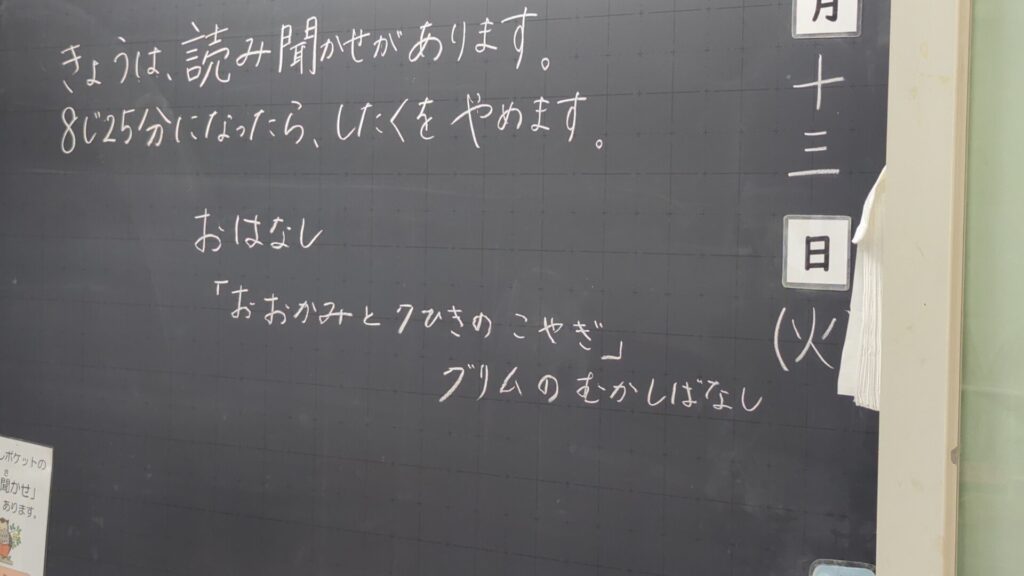 きょうは、読み聞かせがあります。
8じ25分になったら、したくをやめます。
おはなし
「おおかみと7ひきのこやぎ」
グリムのむかしばなし
月
十
三
日
(火
ポケットの
聞かせ」
あります。